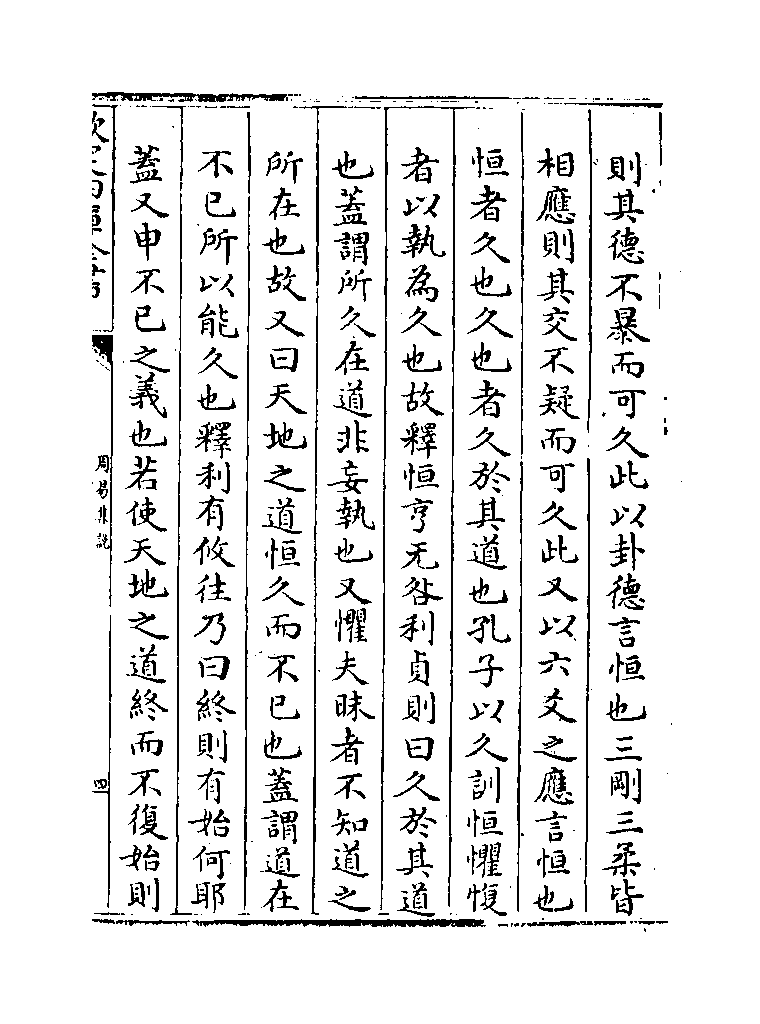 則其德不暴而可久此以卦德言恒也三剛三柔皆
相應則其交不疑而可久此又以六爻之應言恒也
恒者久也久也者久於其道也孔子以久訓恒懼愎
者以執為久也故釋恒亨无咎利貞則曰久於其道
也蓋謂所久在道非妄執也又懼夫昧者不知道之
所在也故又曰天地之道恒久而不已也蓋謂道在
不已所以能久也釋利有攸往乃曰終則有始何耶
蓋又申不已之義也若使天地之道終而不復始則
欽定四庫全書
周易集說
四